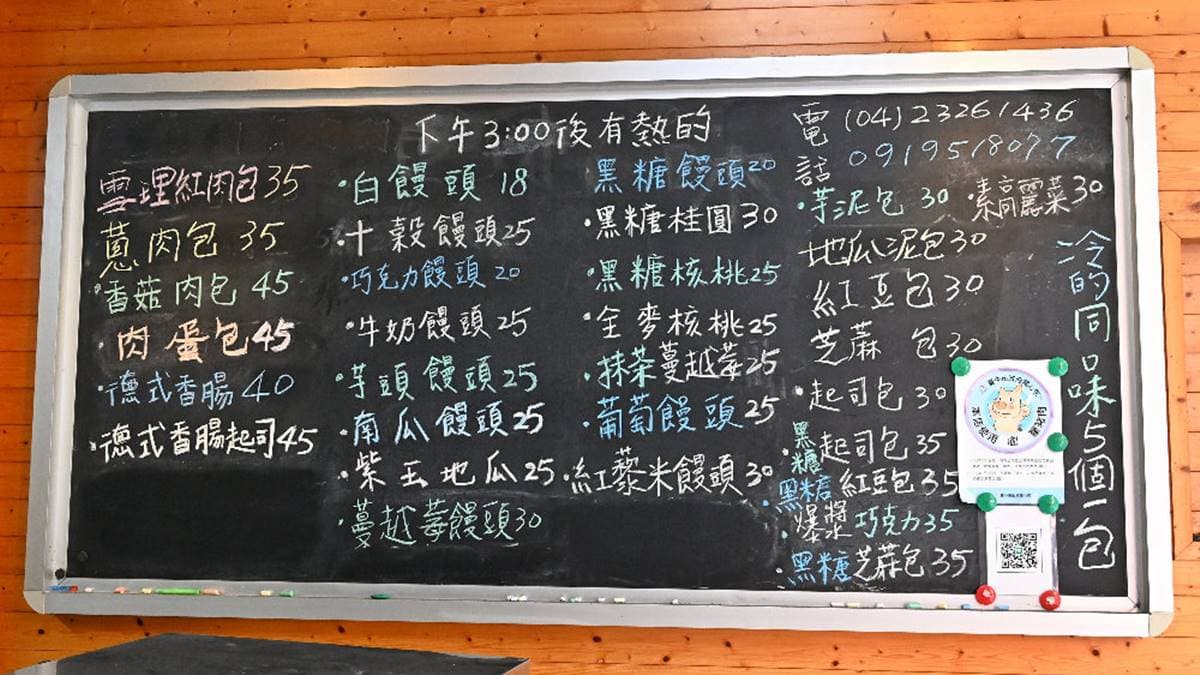 下午3:00後有熱的
雪理紅肉包35
蔥肉包 35
香菇肉包 45
肉蛋包45
德式香腸40
德式香腸起司45
白饅頭 18
十榖饅頭25
巧克力饅頭 20
牛奶饅頭 25
芋頭饅頭 25
南瓜饅頭25
紫玉地瓜25
蔓越莓饅頭30
黑糖饅頭20
黑糖桂圓30
黑糖核桃25
全麥核桃25
抹茶蔓越莓25
葡萄饅頭25
紅藜米饅頭30
電話 (04)23261436
0919518077
芋泥包 30
素高麗菜30
地瓜泥包30
紅豆包30
芝蔴包30
起司包 30
黑糖起司包35
黑糖紅豆包35
爆漿巧克力35
黑糖芝蔴包35
冷的同口味5個一包